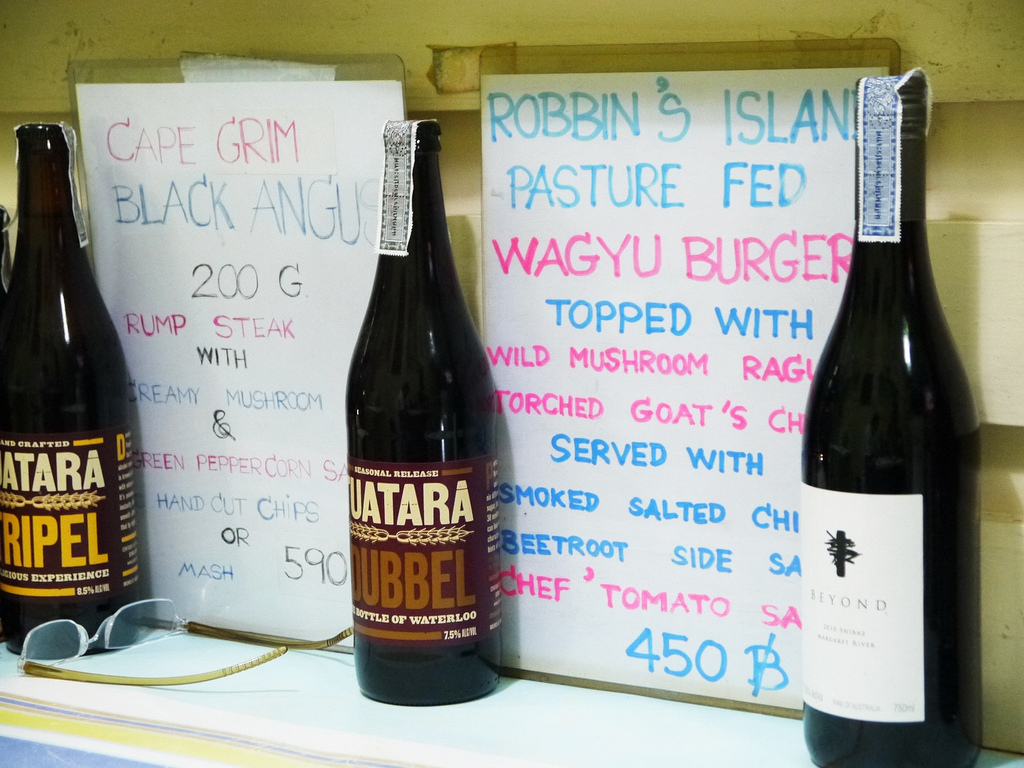 CAPE GRIM
BLACK ANGUS
200 G
RUMP STEAK
WITH
CREAMY MUSHROOM
&
GREEN PEPPERCORN SA
HAND CUT CHIPS
OR
MASH 590
ROBBIN'S ISLAN
PASTURE FED
WAGYU BURGER
TOPPED WITH
WILD MUSHROOM RAGU
TORCHED GOAT'S CH
SERVED WITH
SMOKED SALTED CHI
BEETROOT SIDE SA
CHEF'TOMATO SA
450 ฿
AND CRAFTED
UATARA
TRIPEL
LICIOUS EXPERIENCE
8.5% ALC/VOL
SEASONAL RELEASE
TUATARA
DUBBEL
BOTTLE OF WATERLOO
7.5% ALC/VOL
BEYOND
2010 SHIRAZ
MARGARET RIVER
WINE OF AUSTRALIA 750ml